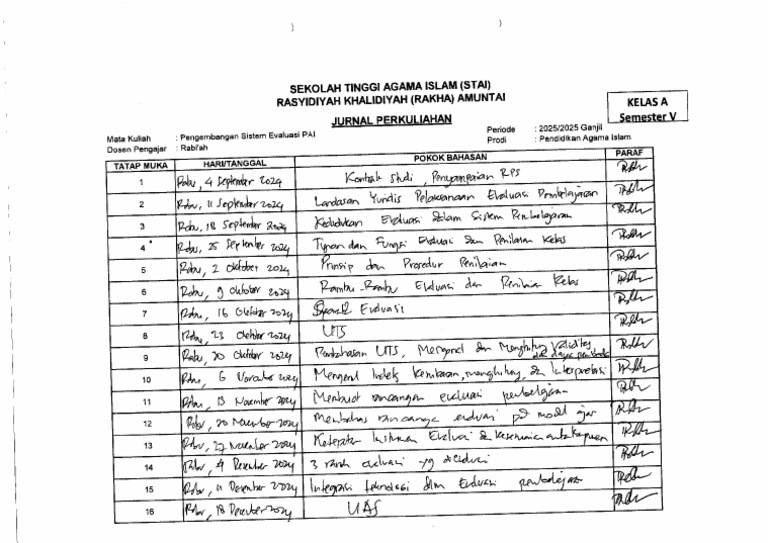 SEKOLAH TINGGI AGAMA ISLAM (STAI)
RASYIDIYAH KHALIDIYAH (RAKHA) AMUNTAI
KELAS A
Semester V
JURNAL PERKULIAHAN
Mata Kuliah : Pengembangan Sistem Evaluasi PAI Periode : 2025/2025 Ganjil
Dosen Pengajar : Rabi'ah Prodi : Pendidikan Agama Islam
TATAP MUKA HARI/TANGGAL POKOK BAHASAN PARAF
1 Rabu, 4 September 2024 Kontrak Studi, Penyampaian RPS
2 Rabu, 11 September 2024 Landasan Yuridis Pelaksanaan Evaluasi Pembelajaran
3 Rabu, 18 September 2024 Kedudukan Evaluasi dalam Sistem Pembelajaran
4 Rabu, 25 September 2024 Tujuan dan Fungsi Evaluasi dan Penilaian Kelas
5 Rabu, 2 Oktober 2024 Prinsip dan Prosedur Penilaian
6 Rabu, 9 Oktober 2024 Rambu-Rambu Evaluasi dan Penilaian Kelas
7 Rabu, 16 Oktober 2024 Evaluasi
8 Rabu, 23 Oktober 2024 UTS
9 Rabu, 30 Oktober 2024 Pembahasan UTS, Mengenal dan Menghitung Validitas dan daya pembeda
10 Rabu, 6 November 2024 Mengenal Indeks Kesukaran, menghitung, dan Interpretasi
11 Rabu, 13 November 2024 Membuat rancangan evaluasi pembelajaran
12 Rabu, 20 November 2024 Membahas rancangan evaluasi pd modul ajar
13 Rabu, 27 November 2024 Ketepatan Instrumen Evaluasi
14 Rabu, 4 Desember 2024 3 ranah evaluasi yg
15 Rabu, 11 Desember 2024 Integrasi teknologi dlm Evaluasi pembelajaran
16 Rabu, 18 Desember 2024 UAS